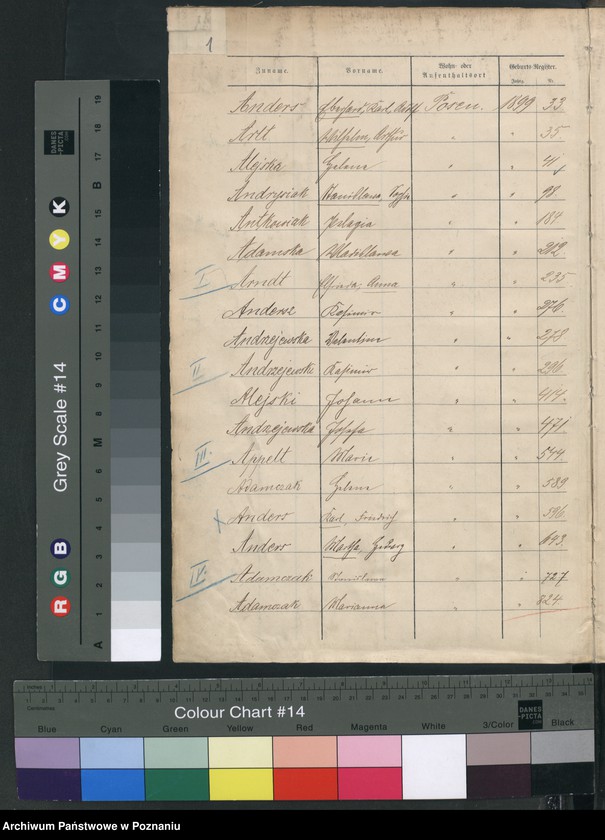 1
Zuname. Vorname. Wohn- oder Aufenthaltsort Geburts-Register.
Jahrg. Nr.
Anders Eberhard, Karl, Adolf Posen. 1899 33
Artt Wilhelm, Arthur " " 35.
Alejska Helene " " 41
Andrysiak Stanislawa, " " 98.
Antkowiak Pelagia " " 188
Adamska Wladislawa " " 212.
I. Arndt Elfrieda, Anna " " 235
Anders Kasimir " " 276.
Andrzejewska Valentine " " 278.
II Andrzejewski Kasimir " " 296.
Alejski Johann " " 414.
Andrzejewska Josefa " " 471.
III. Appelt Marie " " 544.
Adamczak Helene " " 589
Anders Karl, Friedrich " " 596
Anders Martha, Hedwig " " 693.
IV. Adamczak " " 727
Adamczak Marianna " " 824.
Grey Scale #14
DANES-PICTA.COM
R G B C M Y K
A 1 2 3 4 5 6 M 8 9 10 11 12 13 14 15 B 17 18 19
Inches
Centimetres
Colour Chart #14
DANES-PICTA.COM
Blue Cyan Green Yellow Red Magenta White 3/Color Black
Archiwum Państwowe w Poznaniu